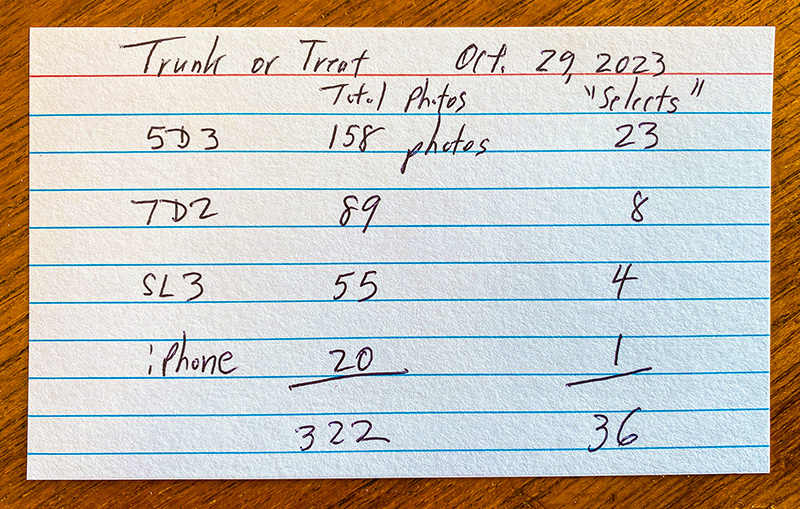 Trunk or Treat Oct. 29, 2023
Total Photos "Selects"
5D3 158 photos 23
7D2 89 8
SL3 55 4
iPhone 20 1
322 36